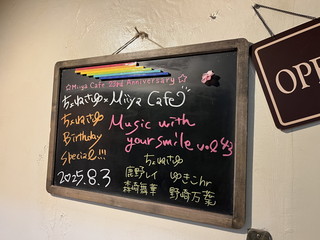 ☆Miiya Cafe 23rd Anniversary☆
ちぇねさゆ×Miiya Cafe
ちぇねさゆ
Birthday
Special!!!
2025.8.3
Music with
your smile vol.43
ちぇねさゆ
鹿野レイ ゆきこhr
森崎舞華 野崎万葉
OPE